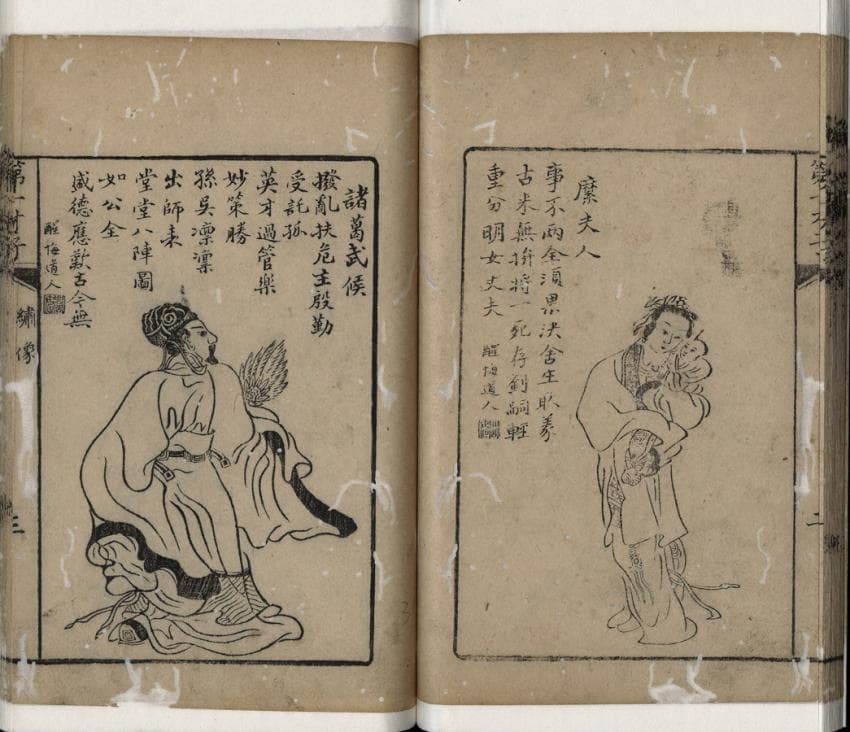 第一才子
二
糜夫人
事不兩全須果決舍生取義
古来無拚將一死存劉嗣輕
重分明女丈夫
醒悔道人
諸葛武侯
撥亂扶危主殷勤
受託孤
英才過管樂
妙策勝
孫吳凜凜
出師表
堂堂八陣圖
如公全
盛德應歎古今無
醒悔道人
第一才子
繡像
三